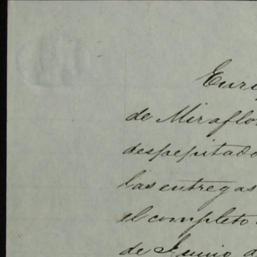 Euri
de Miraflo
despepitado
las entregas
el completo
de Junio d